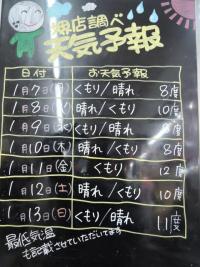 当店調べ
天気予報
日付 お天気予報
1月7日(月) くもり/晴れ 8度
1月8日(火) 晴れ/くもり 10度
1月9日(水) くもり/晴れ 8度
1月10日(木) 晴れ/くもり 8度
1月11日(金) くもり 12度
1月12日(土) 晴れ/くもり 10度
1月13日(日) くもり/晴れ 11度
最低気温
も記載させていただいてます